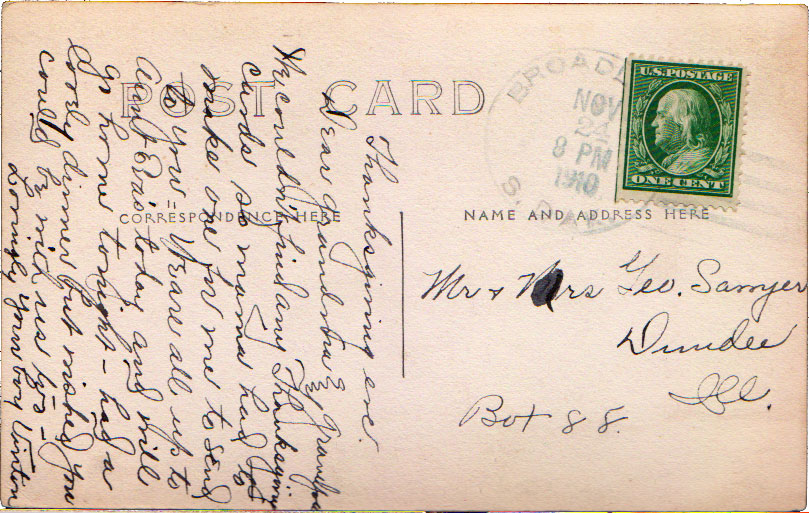 POST CARD
CORRESPONDENCE HERE
NAME AND ADDRESS HERE
U.S. POSTAGE
ONE CENT
NOV
24
8 PM
1910
S. DAK
Thanksgiving eve.
Dear Grandma & Grandpa
We couldn't find any Thanksgiving
cards so mama had to
make one for me to send
to you = We are all up to
Aunt today and will
go home tonight - had a
lovely dinner but wished you
could be with us
Lovingly your boy Vinton
Mr & Mrs Geo. Sawyer
Dundee
Ill.
Box 88.